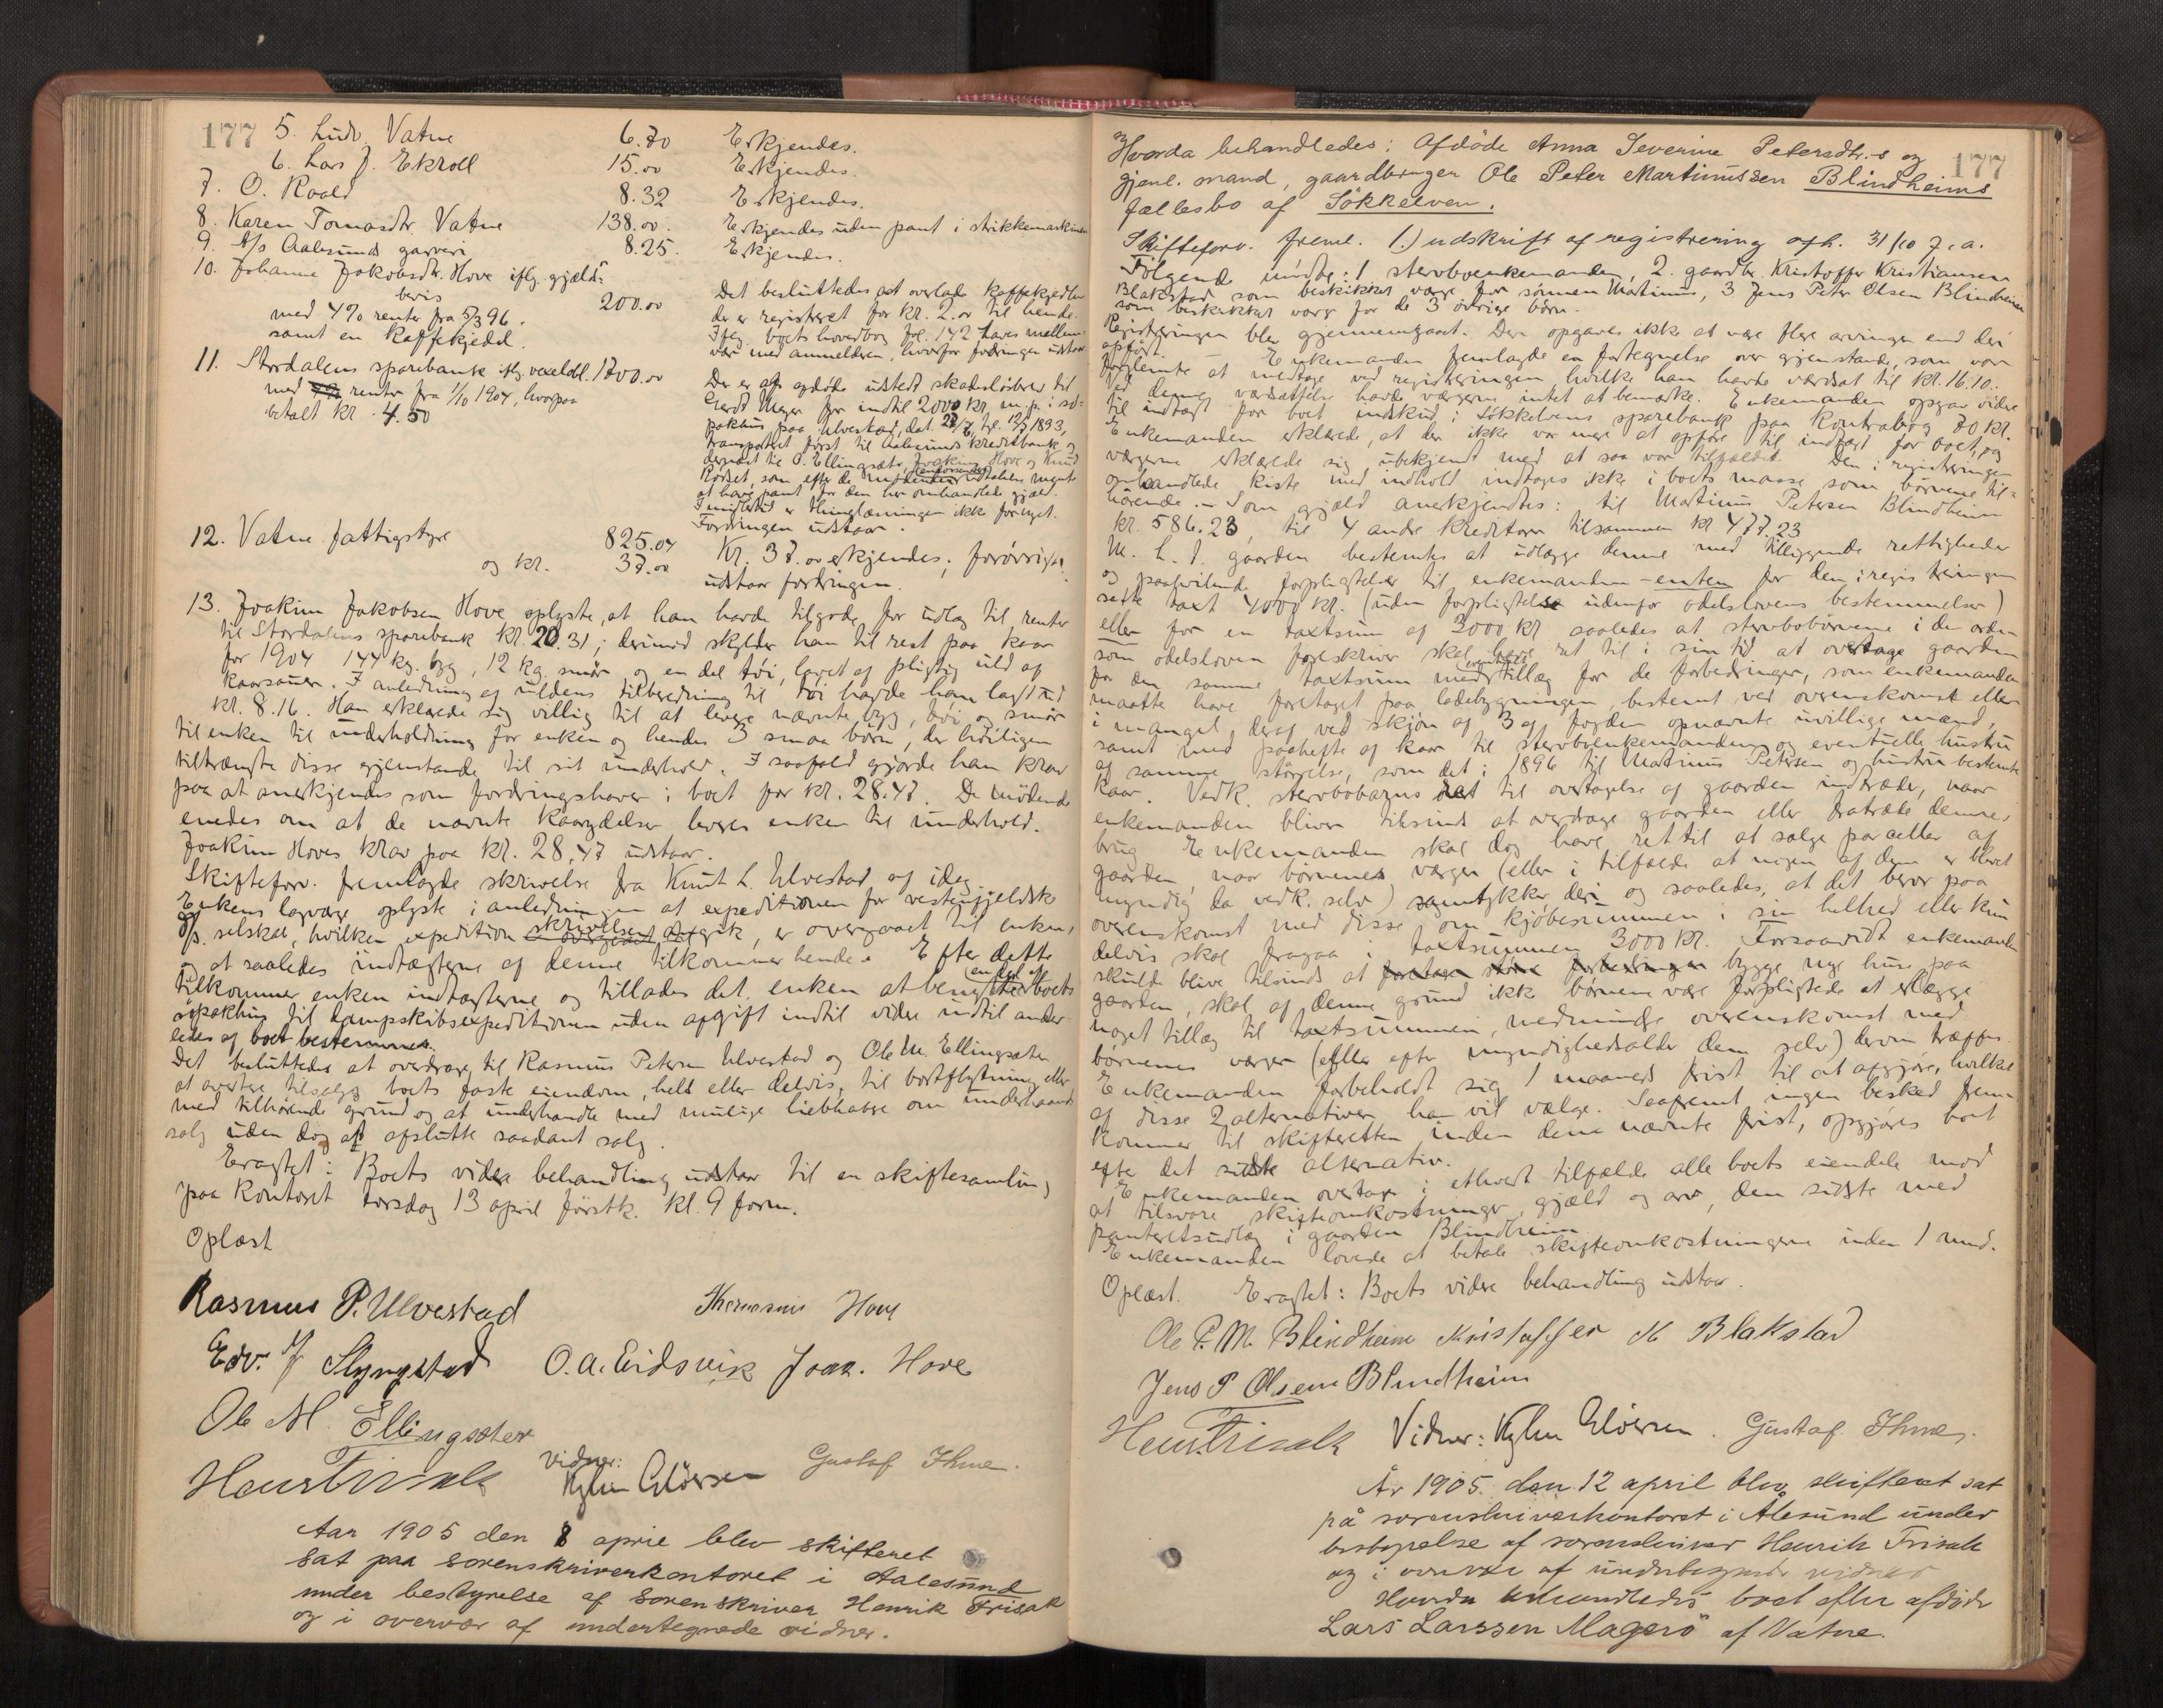 177
5. Ludv. Vatne 6.70 Erkjendes.
6. Lars J. Ekroll 15.00 Erkjendes.
7. O. Roald 8.32 Erkjendes.
8. Karen Tomasdtr. Vatne 138.00. Erkjendes uden pant i strikkemaskinen
9. A/s Aalesunds garveri 8.25. Erkjendes.
10. Johanne Jakobsdtr. Hove iflg. gjælds-
bevis 200.00
med 4% renter fra 5/3 96.
samt en Kaffekjedel.
Det besluttedes at overlade kaffekjedlen
der er registreret for kr. 2.00 til hende.
Iflg. boets hovedbog fol. 142 haves mellem-
vær med anmelderen, hvorfor fordringen udstaar
11. Stordalens sparebank iflg. vexelobl. 1700.00
med renter fra 1/10 1904, hvorpaa
betalt kr. 4.50
Der er af afdøde udstedt skadesløsbrev til
Gerdt Meyer for indtil 2000 kr, m. p. i sø-
pakhus paa Ulvestad, dat. 28/7, tgl. 12/9 1893,
transporteret først til Aalesunds kreditbank og
dernæst til O. Ellingsæter, Joakim Hove og Knud
Rødset, som efter de mødendes udtalelser mente
at have pant for den her omhandlede gjæld.
Imidlertid er thinglæsningen ikke fornyet.
Fordringen udstaar.
12. Vatne fattigstyre 825.04
og kr. 37.00
Kr. 37.00 erkjendes; forøvrigt
udstaar fordringen.
13. Joakim Jakobsen Hove oplyste, at han havde tilgode for udlæg til renter
til Stordalens sparebank kr. 20.31; derimod skylder han til rest paa kaar
for 1904 144 kg. byg, 12 kg. smør og en del tøi, lavet af pligtig uld af
kaarsauer. I anledning af uldens tilberedning til tøi havde han lagt ud
kr. 8.16. Han erklærede sig villig til at levere nævnte byg, tøi og smør
til enken til underholdning for enken og hendes 3 smaa børn, der høiligen
tiltrængte disse gjenstande til sit underhold. I saafald gjorde han krav
paa at anerkjendes som fordringshaver i boet for kr. 28.47. De mødende
enedes om at de nævnte kaarydelser leveres enken til underhold.
Joakim Hoves krav paa kr. 28,47 udstaar.
Skifteforv. fremlagde skrivelse fra Knut L. Ulvestad af idag.
Enkens lagværge oplyste i anledningen at expeditionen for vestenfjeldske
d/s. selskab, hvilken expedition skrivelsen afgik, er overgaaet til enken,
og at saaledes indtægterne af denne tilkommer hende. Efter dette
tilkommer enken indtægterne og tillades det enken at benytte en del af boets
søpakhus til dampskibsexpeditionen uden afgift indtil videre indtil ander-
ledes af boet bestemmes.
Det besluttedes at overdrage til Rasmus Petersen Ulvestad og Ole M. Ellingsæter
at avertere tilsalgs boets faste eiendom, helt eller delvis, til bortflytning eller
med tilhørende grund og at underhandle med mulige liebhabere om underhaands
salg uden dog at afslutte saadant salg.
Eragtet: Boets videre behandling udstaar til en skiftesamling
paa kontoret torsdag 13 april førstk. kl. 9 form.
Oplæst
Rasmus P. Ulvestad Thomasine Hove
Edv. J Slyngstad O. A. Eidsvik Joak. Hove
Ole M. Ellingsæter
Henr Frisak vidner: Gustaf Ihme.
Aar 1905 den 8 april blev skifteret
sat paa sorenskriverkontoret i Aalesund
under bestyrelse af sorenskriver Henrik Frisak
og i overvær af undertegnede vidner.
177
Hvorda behandledes: Afdøde Anna Severine Petersdtr.-s og
gjenl. mand, gaardbruger Ole Peter Martinussen Blindheims
fællesbo af Søkkelven.
Skifteforv. freml. 1.) udskrift af registrering afh. 31/10 f. a.
Følgende mødte: 1. stervboenkemanden, 2. gaardbr. Kristoffer Kristiansen
Blakstad som beskikket værge for sønnen Martinus, 3 Jens Peter Olsen Blindheim
som beskikket værge for de 3 øvrige børn.
Registreringen blev gjennemgaaet. Der opgaves ikke at være flere arvinger end deri
opført. Enkemanden fremlagde en fortegnelse over gjenstande, som var
forglemte at medtage ved registreringen, hvilke han havde værdsat til kr. 16.10.
Ved denne værdsættelse havde værgerne intet at bemærke. Enkemanden opgav videre
til indtægt for boet indskud i Søkkelvens sparebank paa kontrabog 70 kr.
Enkemanden erklærede, at der ikke var mere at opføre til indtægt for boet, og
værgerne erklærede sig ubekjendt med at saa var tilfældet. Den i registreringen
omhandlede kiste med indhold indtages ikke i boets masse som børnene til-
hørende. – Som gjæld anerkjendtes: til Martinus Petersen Blindheim
kr. 586.23, til 4 andre kreditorer tilsammen kr 477.23
M. h. t. gaarden bestemtes at udlægge denne med tilliggende rettigheder
og paahvilende forpligtelser til enkemanden – enten for den i registreringen
satte taxt 4000 kr. (uden forpligtelse udenfor odelslovens bestemmelser)
eller for en taxtsum af 3000 kr saaledes at stervbobørnene i den orden
som odelsloven foreskriver skal have ret til i sin tid at overtage gaarden
for den samme taxtsum med eventuelt tillæg for de forbedringer, som enkemanden
maatte have foretaget paa ladebygningen, bestemt ved overenskomst eller
i mangel deraf ved skjøn af 3 af fogden opnævnte uvillige mænd,
samt med paahefte af kaar til stervboenkemanden og eventuelle hustru
af samme størrelse, som det i 1896 til Martinus Petersen og hustru bestemte
kaar. Vedk. stervbobarns ret til overtagelse af gaarden indtræder, naar
enkemanden bliver tilsinds at overdrage gaarden eller fratræde dennes
brug. Enkemanden skal dog have ret til at sælge parceller af
gaarden, naar børnenes værger (eller i tilfælde at nogen af dem er blevet
myndig da vedk. selv) samtykker deri og saaledes, at det beror paa
overenskomst med disse om kjøbesummen i sin helhed eller kun
delvis skal fragaa i taxtsummen 3000 kr. Forsaavidt enkemanden
skulde blive tilsinds at foretage større forbedringer bygge nye huse paa
gaarden, skal af denne grund ikke børnene være forpligtede at erlægge
noget tillæg til taxtsummen, medmindre overenskomst med
børnenes værger (eller efter myndighedsalder dem selv) derom træffes.
Enkemanden forbeholdt sig 1 maaneds frist til at afgjøre, hvilket
af disse 2 alternativer han vil vælge. Saafremt ingen besked frem-
kommer til skifteretten inden denne nævnte frist, opgjøres boet
efter det sidste alternativ.
Enkemanden overtar i ethvert tilfælde alle boets eiendele mod
at tilsvare skifteomkostninger, gjæld og arv, den sidste med
panteretsudlæg i gaarden Blindheim
Enkemanden lovede at betale skifteomkostningerne inden 1 mnd.
Oplæst. Eragtet: Boets videre behandling udstaar.
Ole P. M. Blindheim Kristoffer K Blakstad
Jens P Olsen Blindheim
Henr Frisak Vidner: Gustaf Ihme.
År 1905 den 12 april blev skifteret sat
på sorenskriverkontoret i Ålesund under
bestyrelse af sorenskriver Henrik Frisak
og i overvær af undertegnede vidner
Hvorda behandledes boet efter afdøde
Lars Larssen Magerö af Vatne.